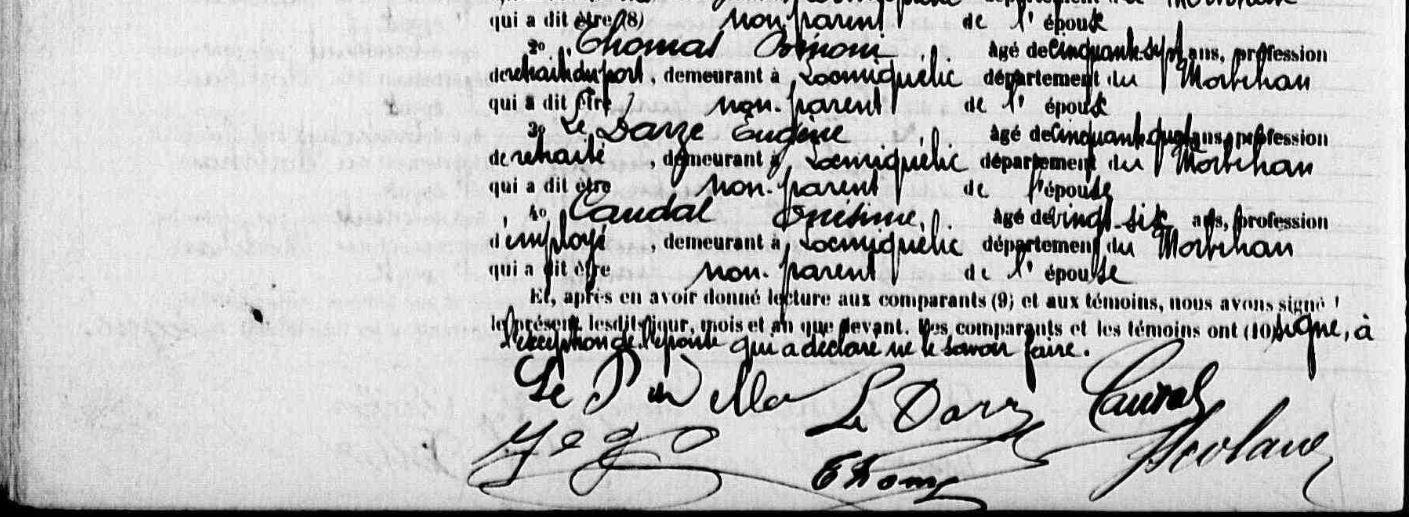 qui a dit être (8) non parent de l'épouse
2o Thomas agé de cinquante-sept ans, profession
de retraité du port, demeurant à Locmiquélic département du Morbihan
qui a dit être non parent de l'épouse
3o Le Darze Eugène agé de cinquante quatre ans, profession
de retraité, demeurant à Locmiquélic département du Morbihan
qui a dit être non parent de l'épouse
4o Caudal Onésime, agé de vingt-six ans, profession
d'employé, demeurant à Locmiquélic département du Morbihan
qui a dit être non parent de l'épouse
Et, après en avoir donné lecture aux comparants (9) et aux témoins, nous avons signé
le présent, lesdits jour, mois et an que devant. Les comparants et les témoins ont (10) signé, à
l'exception de l'épouse qui a déclaré ne le savoir faire.
Le Le Darze Caudal
Yego Thomas